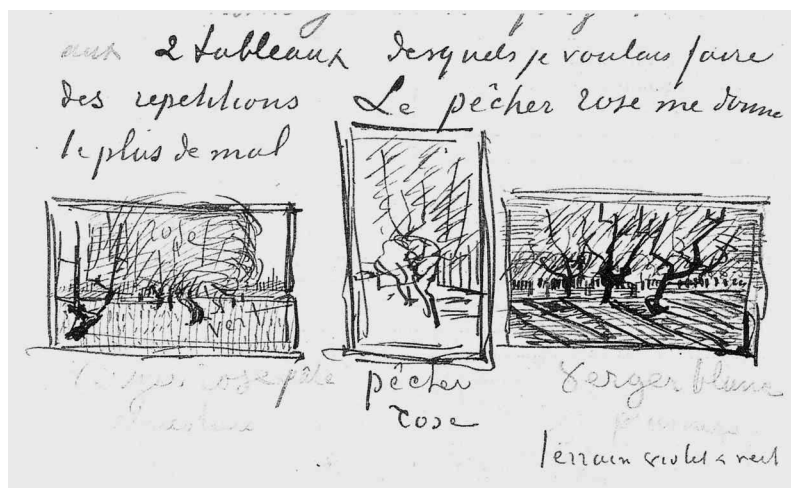 aux 2 tableaux desquels je voulais faire
des repetitions Le pêcher rose me donne
le plus de mal
rose
vert
Verger rose pâle
pêcher
rose
Verger blanc
Terrain violet & vert